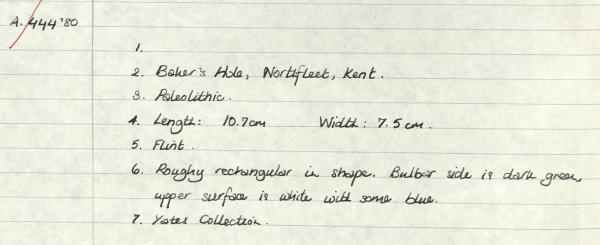 A. 444'80
1.
2. Baker's Hole, Northfleet, Kent.
3. Paleolithic.
4. Length: 10.7cm Width: 7.5cm.
5. Flint.
6. Roughy rectangular in shape. Bulbar side is dark green,
upper surface is white with some blue.
7. Yates Collection.